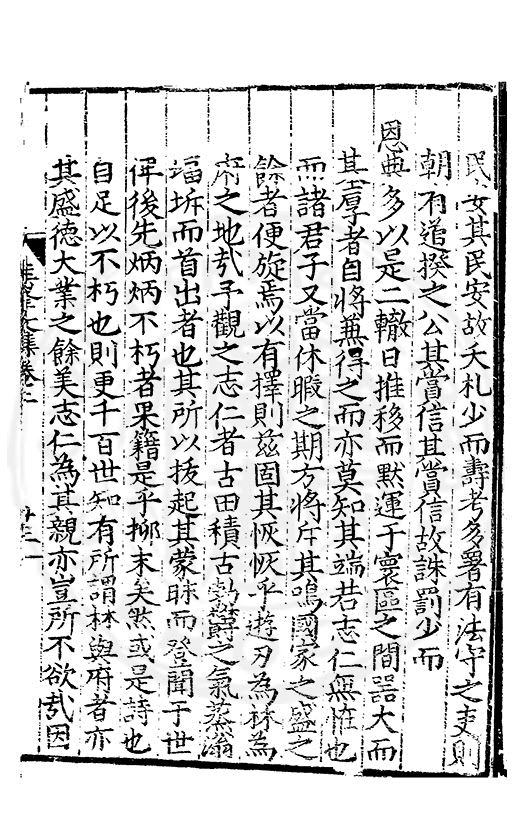 民安其民安故夭札少而壽考多署有法守之吏則
朝有追揆之公其當信其當信故誅罰少而
恩典多以是二轍日推移而默運于寰區之間噐大而
基厚者自將兼得之而亦莫知其端若志仁無惟也
而諸君子又當休暇之期方將斥其鳴國家之盛之
餘者便旋焉以有擇則茲固其恢恢乎遊刃為林為
府之地㢤予觀之志仁者古田積古欝之氣蒸滃
堛坼而首出者也其所以拔起其蒙昧而登聞于世
俾後先炳炳不朽者果籍是乎抑末矣然或是詩也
自足以不朽也則更千百世知有所謂林與府者亦
其盛德大業之餘美志仁為其親亦豈所不欲㢤因
文集卷二